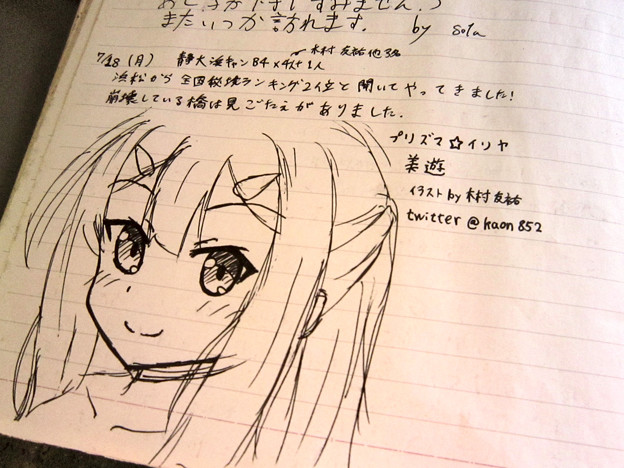 またいつか訪れます。 by sota
木村 友祐 他3名
7/18 (月) 静大浜キャン B4×4人+1人
浜松から全国秘境ランキング2位と聞いてやってきました!
崩壊している橋は見ごたえがありました.
プリズマ☆イリヤ
美遊
イラスト by 木村 友祐
twitter @kaon852